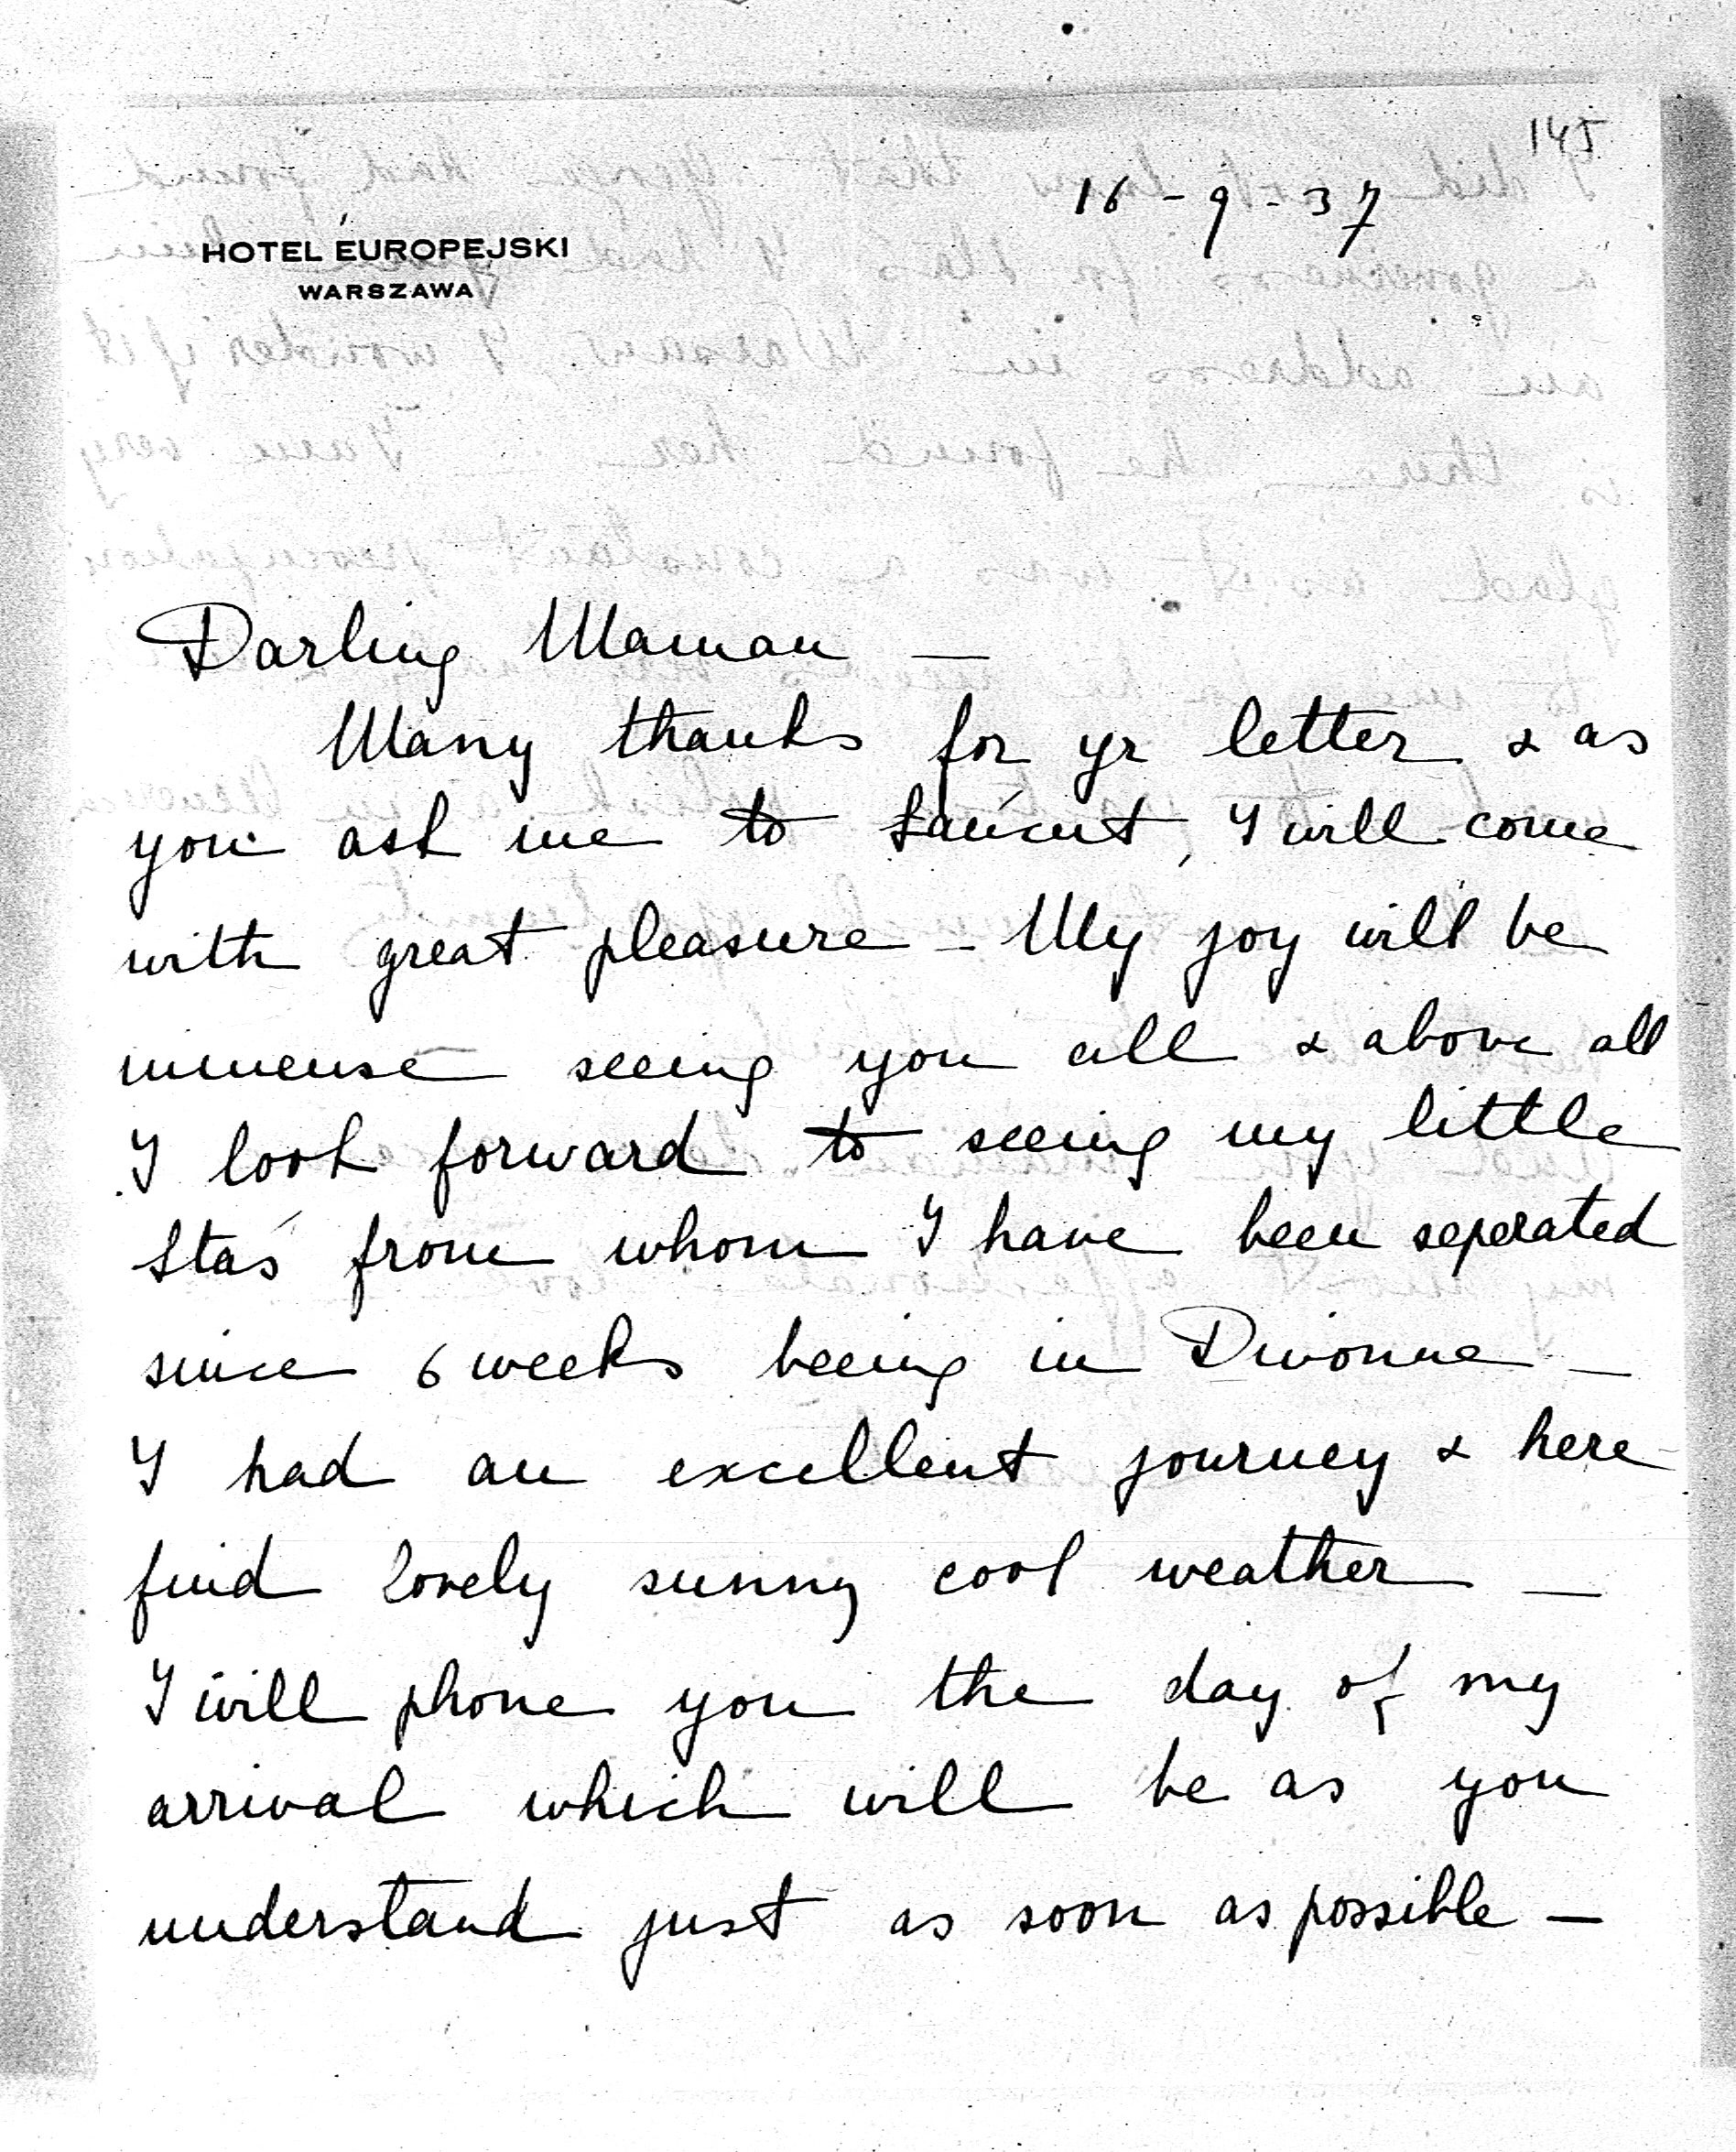 145
16-9-37
HOTEL EUROPEJSKI
WARSZAWA
Darling Maman —
Many thanks for yr letter & as
you ask me to Łańcut, I will come
with great pleasure - My joy will be
immense seeing you all & above all
I look forward to seeing my little
Staś from whom I have been seperated
since 6 weeks beeing in Divonne —
I had an excellent journey & here
find lovely sunny cool weather —
I will phone you the day of my
arrival which will be as you
understand just as soon as possible —